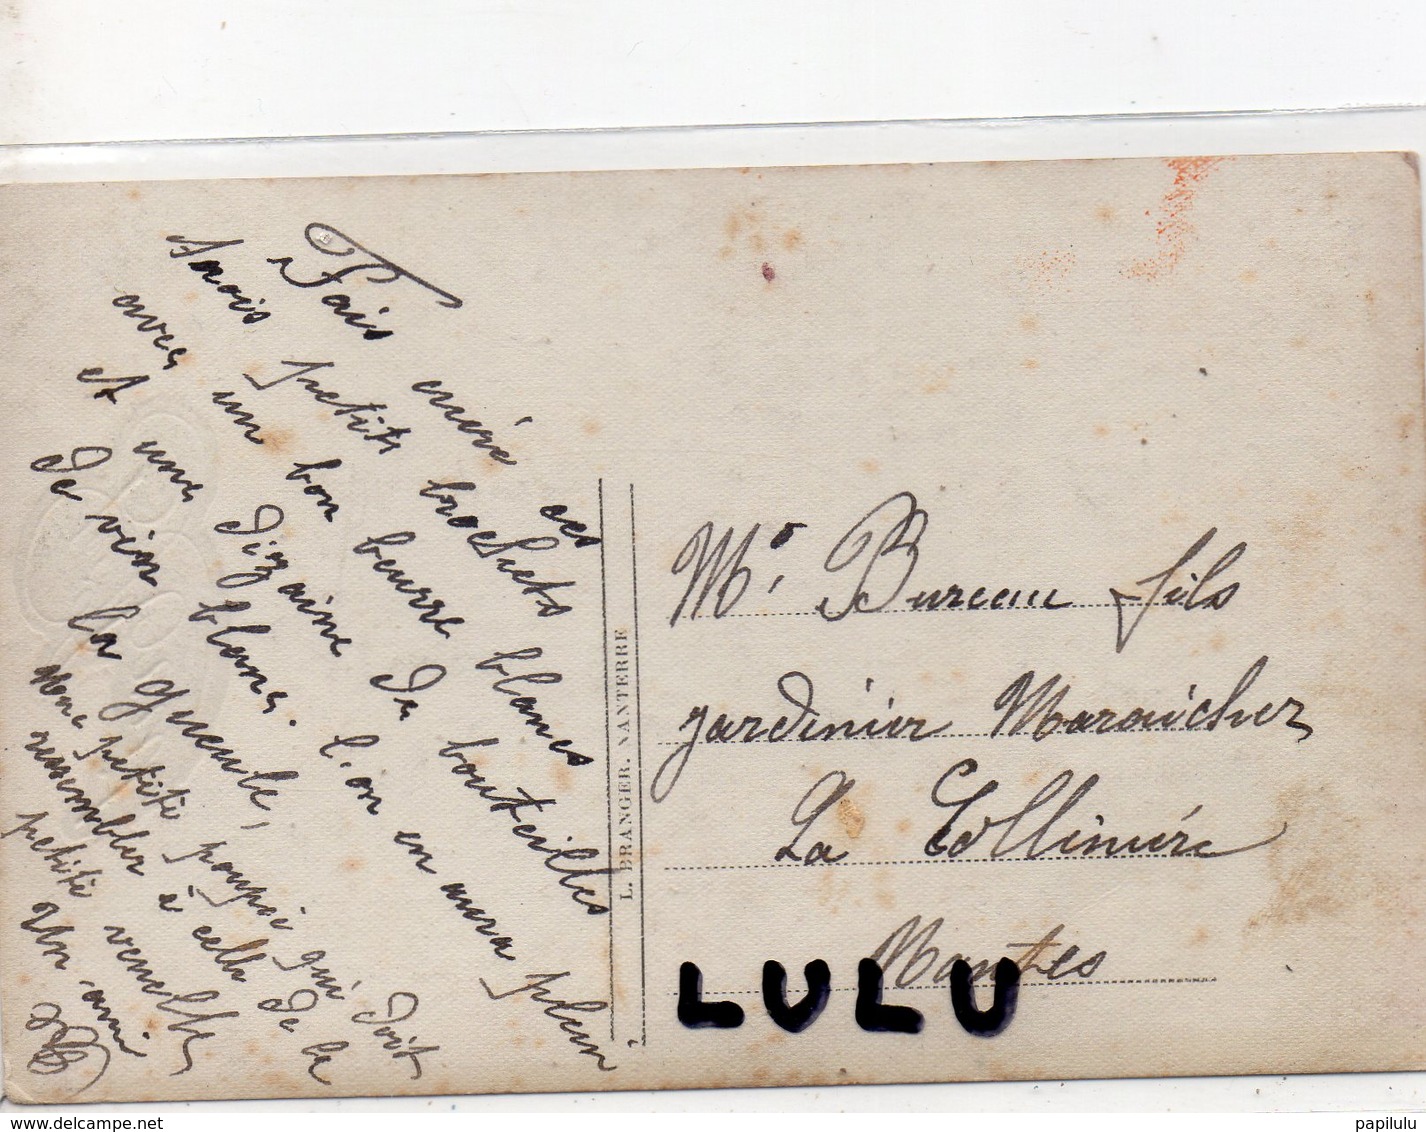 Fais cuire ces
trois petits brochets blancs
avec un bon beurre
et une dizaine de bouteilles
de vin blanc. l'on en aura plein
la gueule,
une petite poupoi qui doit
ressembler à celle de la
petite venelle,
Un ami
L. BRANGER. NANTERRE
Mr. Bureau fils
jardinier Maraicher
La Collinière
Nantes
LULU
www.delcampe.net
papilulu